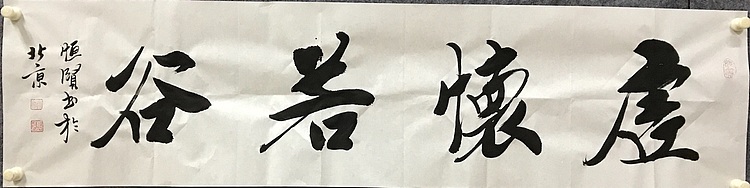 虚懷若谷
恒賢书於
北京